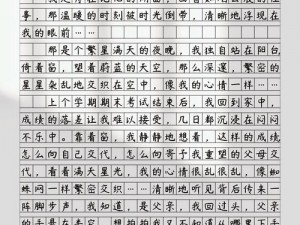 意，那温暖的时刻被时光倒带，清晰地浮现在
我的眼前……
那是个繁星满天的夜晚，我独自站在阳台，
倚着窗，望着蔚蓝的天空，那么深邃，繁密的
星星杂乱地交织在空中，像我的心情一样……
上个学期期末考试结束后，我回到家中，
成绩的落差让我难以接受，几日都沉浸在闷闷
不乐中。靠着窗，我静静地想着，这样的成绩
怎么向自己交代，怎么向寄予我重望的父母交
代，看着看着，满天星也变得模糊了，像蜘
蛛网一样繁密交织……清晰地听见背后传来一
阵脚步声，我知道，是父亲，我回过头，父亲